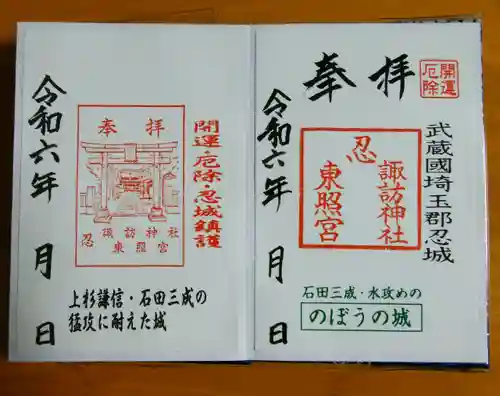 奉拝
開運
厄除
武蔵國埼玉郡忍城
諏訪神社
忍
東照宮
令和六年 月 日
石田三成・水攻めの
のぼうの城
開運・厄除・忍城鎮護
奉拝
諏訪神社
忍 東照宮
令和六年 月 日
上杉謙信・石田三成の
猛攻に耐えた城